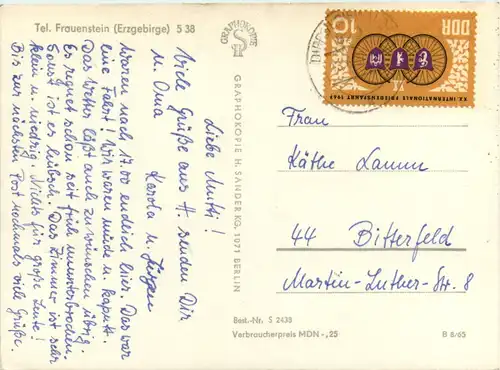 Tel. Frauenstein (Erzgebirge) 5 38
Liebe Mutti!
Viele Grüße aus H. senden Dir
u. Oma Karola u. Jürgen
Waren nach 17.00 endlich hier. Das war
eine Fahrt! Wir waren müde u. kaputt.
Das Wetter läßt auch zu wünschen übrig.
Es regnet schon seit früh ununterbrochen.
Sonst ist es hübsch. Das Zimmer ist sehr
klein u. niedrig. Nichts für große Leute!
Bis zur nächsten Post nochmals viele Grüße.
GRAPHOKOPIE
GRAPHOKOPIE H. SANDER KG, 1071 BERLIN
DDR 10
XX. INTERNATIONALE FRIEDENSFAHRT 1967
Frau
Käthe Lamm
44 Bitterfeld
Martin-Luther-Str. 8
Best.-Nr. S 2438
Verbraucherpreis MDN -,25
B 8/65